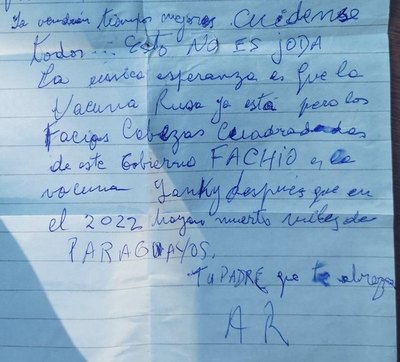 Ya vendrán tiempos mejores Cuidense
todos... Esto NO ES JODA
La unica esperanza es que la
Vacuna Rusa ya esta pero los
Facios Cabezas Cuadradas
de este Gobierno FACHIO es la
vacuna Yanky después que en
el 2022 hayan muerto miles de
PARAGUAYOS.
Tu PADRE que te abraza
A R